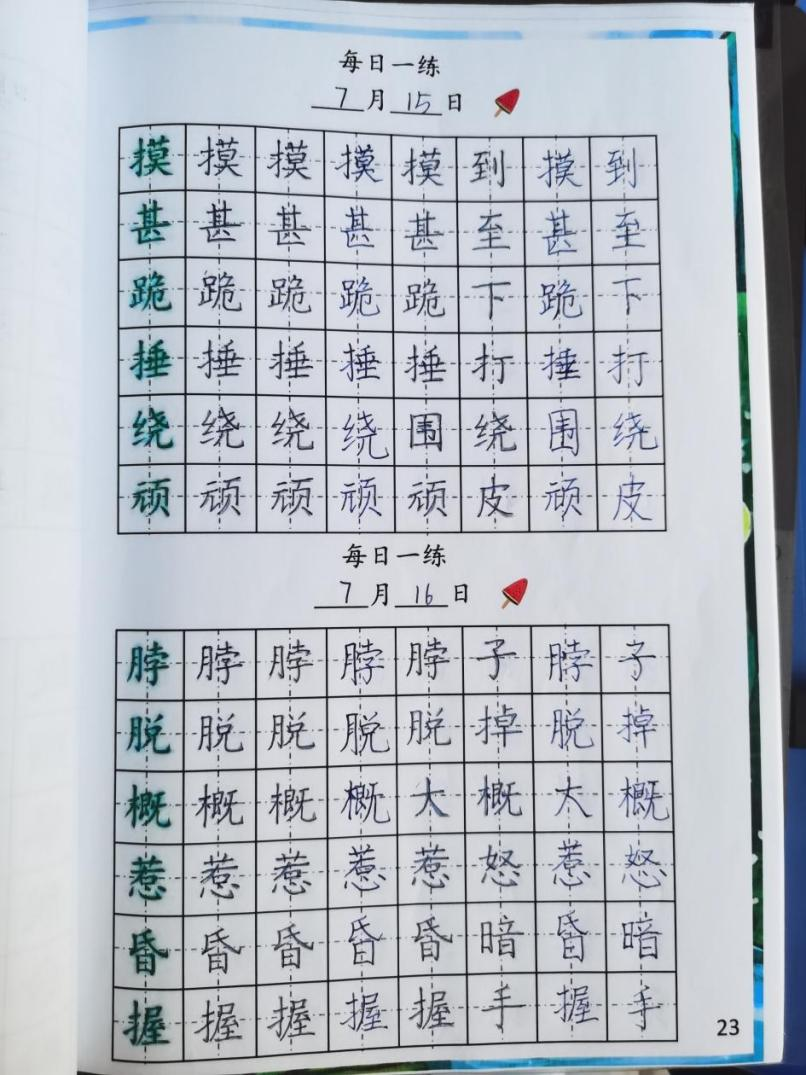 每日一练
7月15日
摸摸摸摸摸到摸到
甚甚甚甚甚至甚至
跪跪跪跪跪下跪下
捶捶捶捶捶打捶打
绕绕绕绕围绕围绕
顽顽顽顽顽皮顽皮
每日一练
7月16日
脖脖脖脖脖子脖子
脱脱脱脱脱掉脱掉
概概概概大概大概
惹惹惹惹惹怒惹怒
昏昏昏昏昏暗昏暗
握握握握握手握手
23